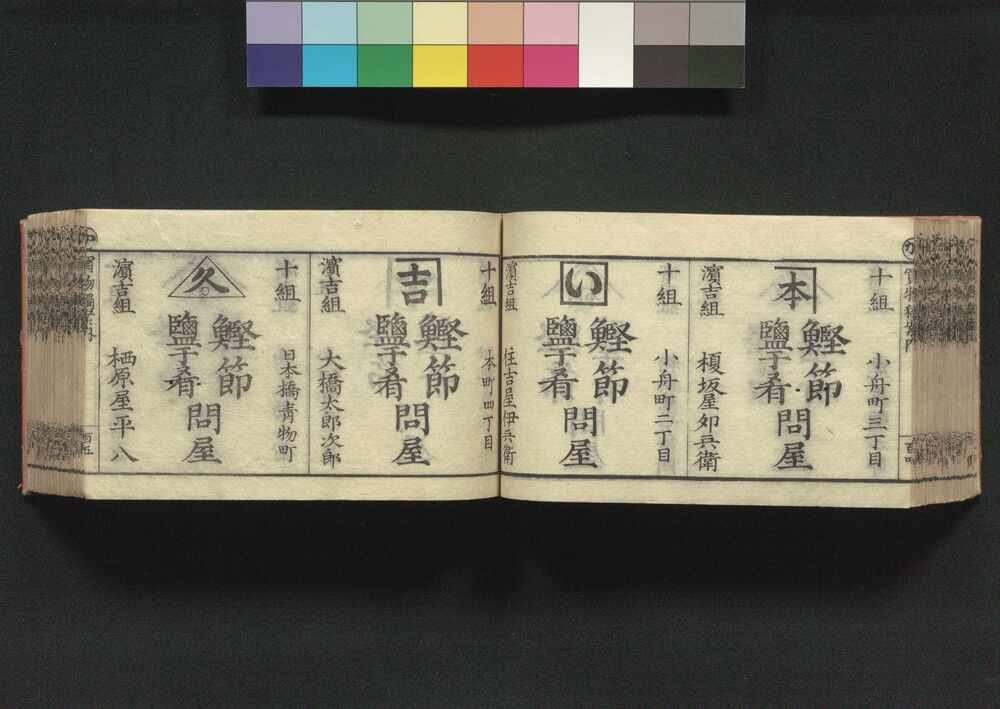 十組
小舟町三丁目
本
鰹節
鹽干肴
問屋
濵吉組
榎坂屋卯兵衛
十組
小舟町二丁目
い
鰹節
鹽干肴
問屋
濵吉組
住吉屋伊兵衛
十組
本町四丁目
吉
鰹節
鹽干肴
問屋
濵吉組
大橋太郎次郎
十組
日本橋青物町
久
鰹節
鹽干肴
問屋
濵吉組
栖原屋平八